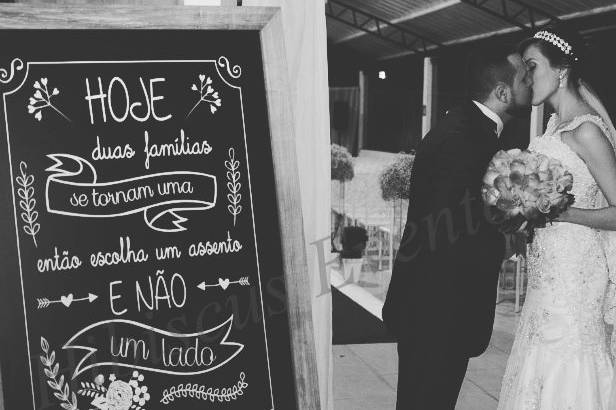 HOJE
duas famílias
se tornam uma
então escolha um assento
E NÃO
um lado
Hibiscus Eventos